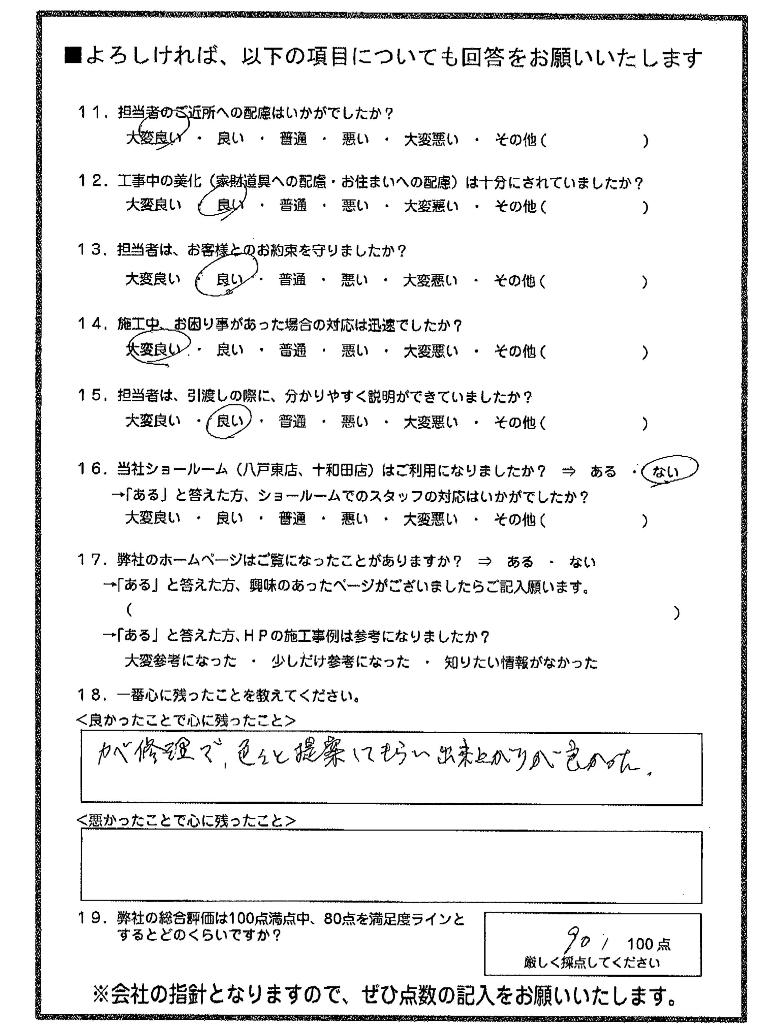 ■よろしければ、以下の項目についても回答をお願いいたします
11．担当者のご近所への配慮はいかがでしたか？
大変良い ・ 良い ・ 普通 ・ 悪い ・ 大変悪い ・ その他（ ）
12．工事中の美化（家財道具への配慮・お住まいへの配慮）は十分にされていましたか？
大変良い ・ 良い ・ 普通 ・ 悪い ・ 大変悪い ・ その他（ ）
13．担当者は、お客様とのお約束を守りましたか？
大変良い ・ 良い ・ 普通 ・ 悪い ・ 大変悪い ・ その他（ ）
14．施工中、お困り事があった場合の対応は迅速でしたか？
大変良い ・ 良い ・ 普通 ・ 悪い ・ 大変悪い ・ その他（ ）
15．担当者は、引渡しの際に、分かりやすく説明ができていましたか？
大変良い ・ 良い ・ 普通 ・ 悪い ・ 大変悪い ・ その他（ ）
16．当社ショールーム（八戸東店、十和田店）はご利用になりましたか？ ⇒ ある ・ ない
→「ある」と答えた方、ショールームでのスタッフの対応はいかがでしたか？
大変良い ・ 良い ・ 普通 ・ 悪い ・ 大変悪い ・ その他（ ）
17．弊社のホームページはご覧になったことがありますか？ ⇒ ある ・ ない
→「ある」と答えた方、興味のあったページがございましたらご記入願います。
（ ）
→「ある」と答えた方、ＨＰの施工事例は参考になりましたか？
大変参考になった ・ 少しだけ参考になった ・ 知りたい情報がなかった
18．一番心に残ったことを教えてください。
＜良かったことで心に残ったこと＞
カベ修理で、色々と提案してもらい出来上がりが良かった。
＜悪かったことで心に残ったこと＞
19．弊社の総合評価は100点満点中、80点を満足度ラインと
するとどのくらいですか？
90/100点
厳しく採点してください
※会社の指針となりますので、ぜひ点数の記入をお願いいたします。